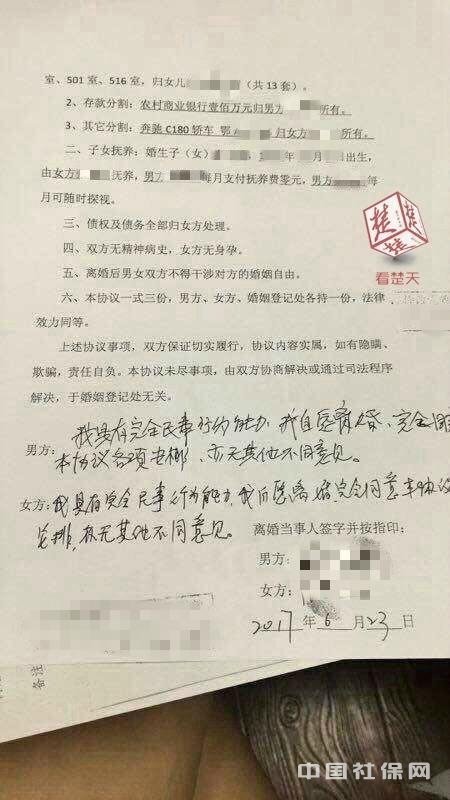 室、501 室、516 室，归女儿（共 13 套）。
2、存款分割：农村商业银行壹佰万元归男方所有。
3、其它分割：奔驰 C180 轿车 鄂归女方所有。
二、子女抚养：婚生子（女）年月出生，
由女方抚养，男方每月支付抚养费零元，男方每
月可随时探视。
三、债权及债务全部归女方处理。
四、双方无精神病史，女方无身孕。
五、离婚后男女双方不得干涉对方的婚姻自由。
六、本协议一式三份，男方、女方、婚姻登记处各持一份，法律
效力同等。
上述协议事项，双方保证切实履行，协议内容实属，如有隐瞒、
欺骗，责任自负。本协议未尽事项，由双方协商解决或通过司法程序
解决，于婚姻登记处无关。
我具有完全民事行为能力，我自愿离婚，完全同
男方：本协议各项安排，亦无其他不同意见。
女方：我具有完全民事行为能力，我自愿离婚完全同意本协议
安排，亦无其他不同意见。
离婚当事人签字并按指印：
男方：
女方：
2017 年 6 月 23 日
备注
楚
看楚天
中国社保网